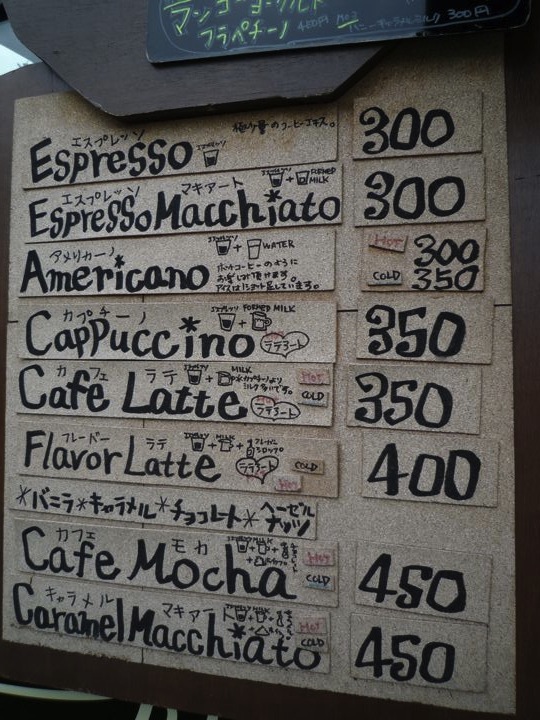 マンゴーヨーグルト
フラペチーノ 450円
バニーキャラメルミルク 300円
エスプレッソ
Espresso 300
極少量のコーヒーエキス。
エスプレッソ マキアート
Espresso Macchiato 300
FORMED MILK
アメリカーノ
Americano Hot 300
COLD 350
+ WATER
ホットコーヒーのように
お楽しみ頂けます。
カプチーノ
Cappuccino 350
エスプレッソ + FORMED MILK
ラテアート
カフェ ラテ
Cafe Latte 350
MILK
ラテアート
Hot
COLD
フレーバー ラテ
Flavor Latte 400
MILK
ラテアート
COLD
Hot
*バニラ*キャラメル*チョコレート*ヘーゼルナッツ
カフェ モカ
Cafe Mocha 450
MILK
Hot
COLD
キャラメル マキアート
Caramel Macchiato 450
MILK
Hot
COLD